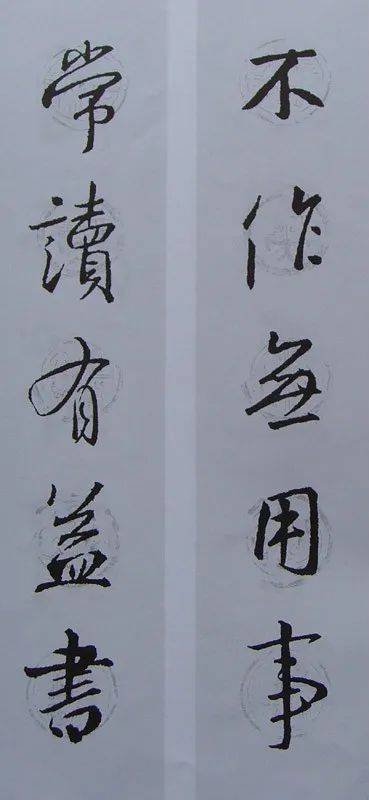 不作無用事
常讀有益書